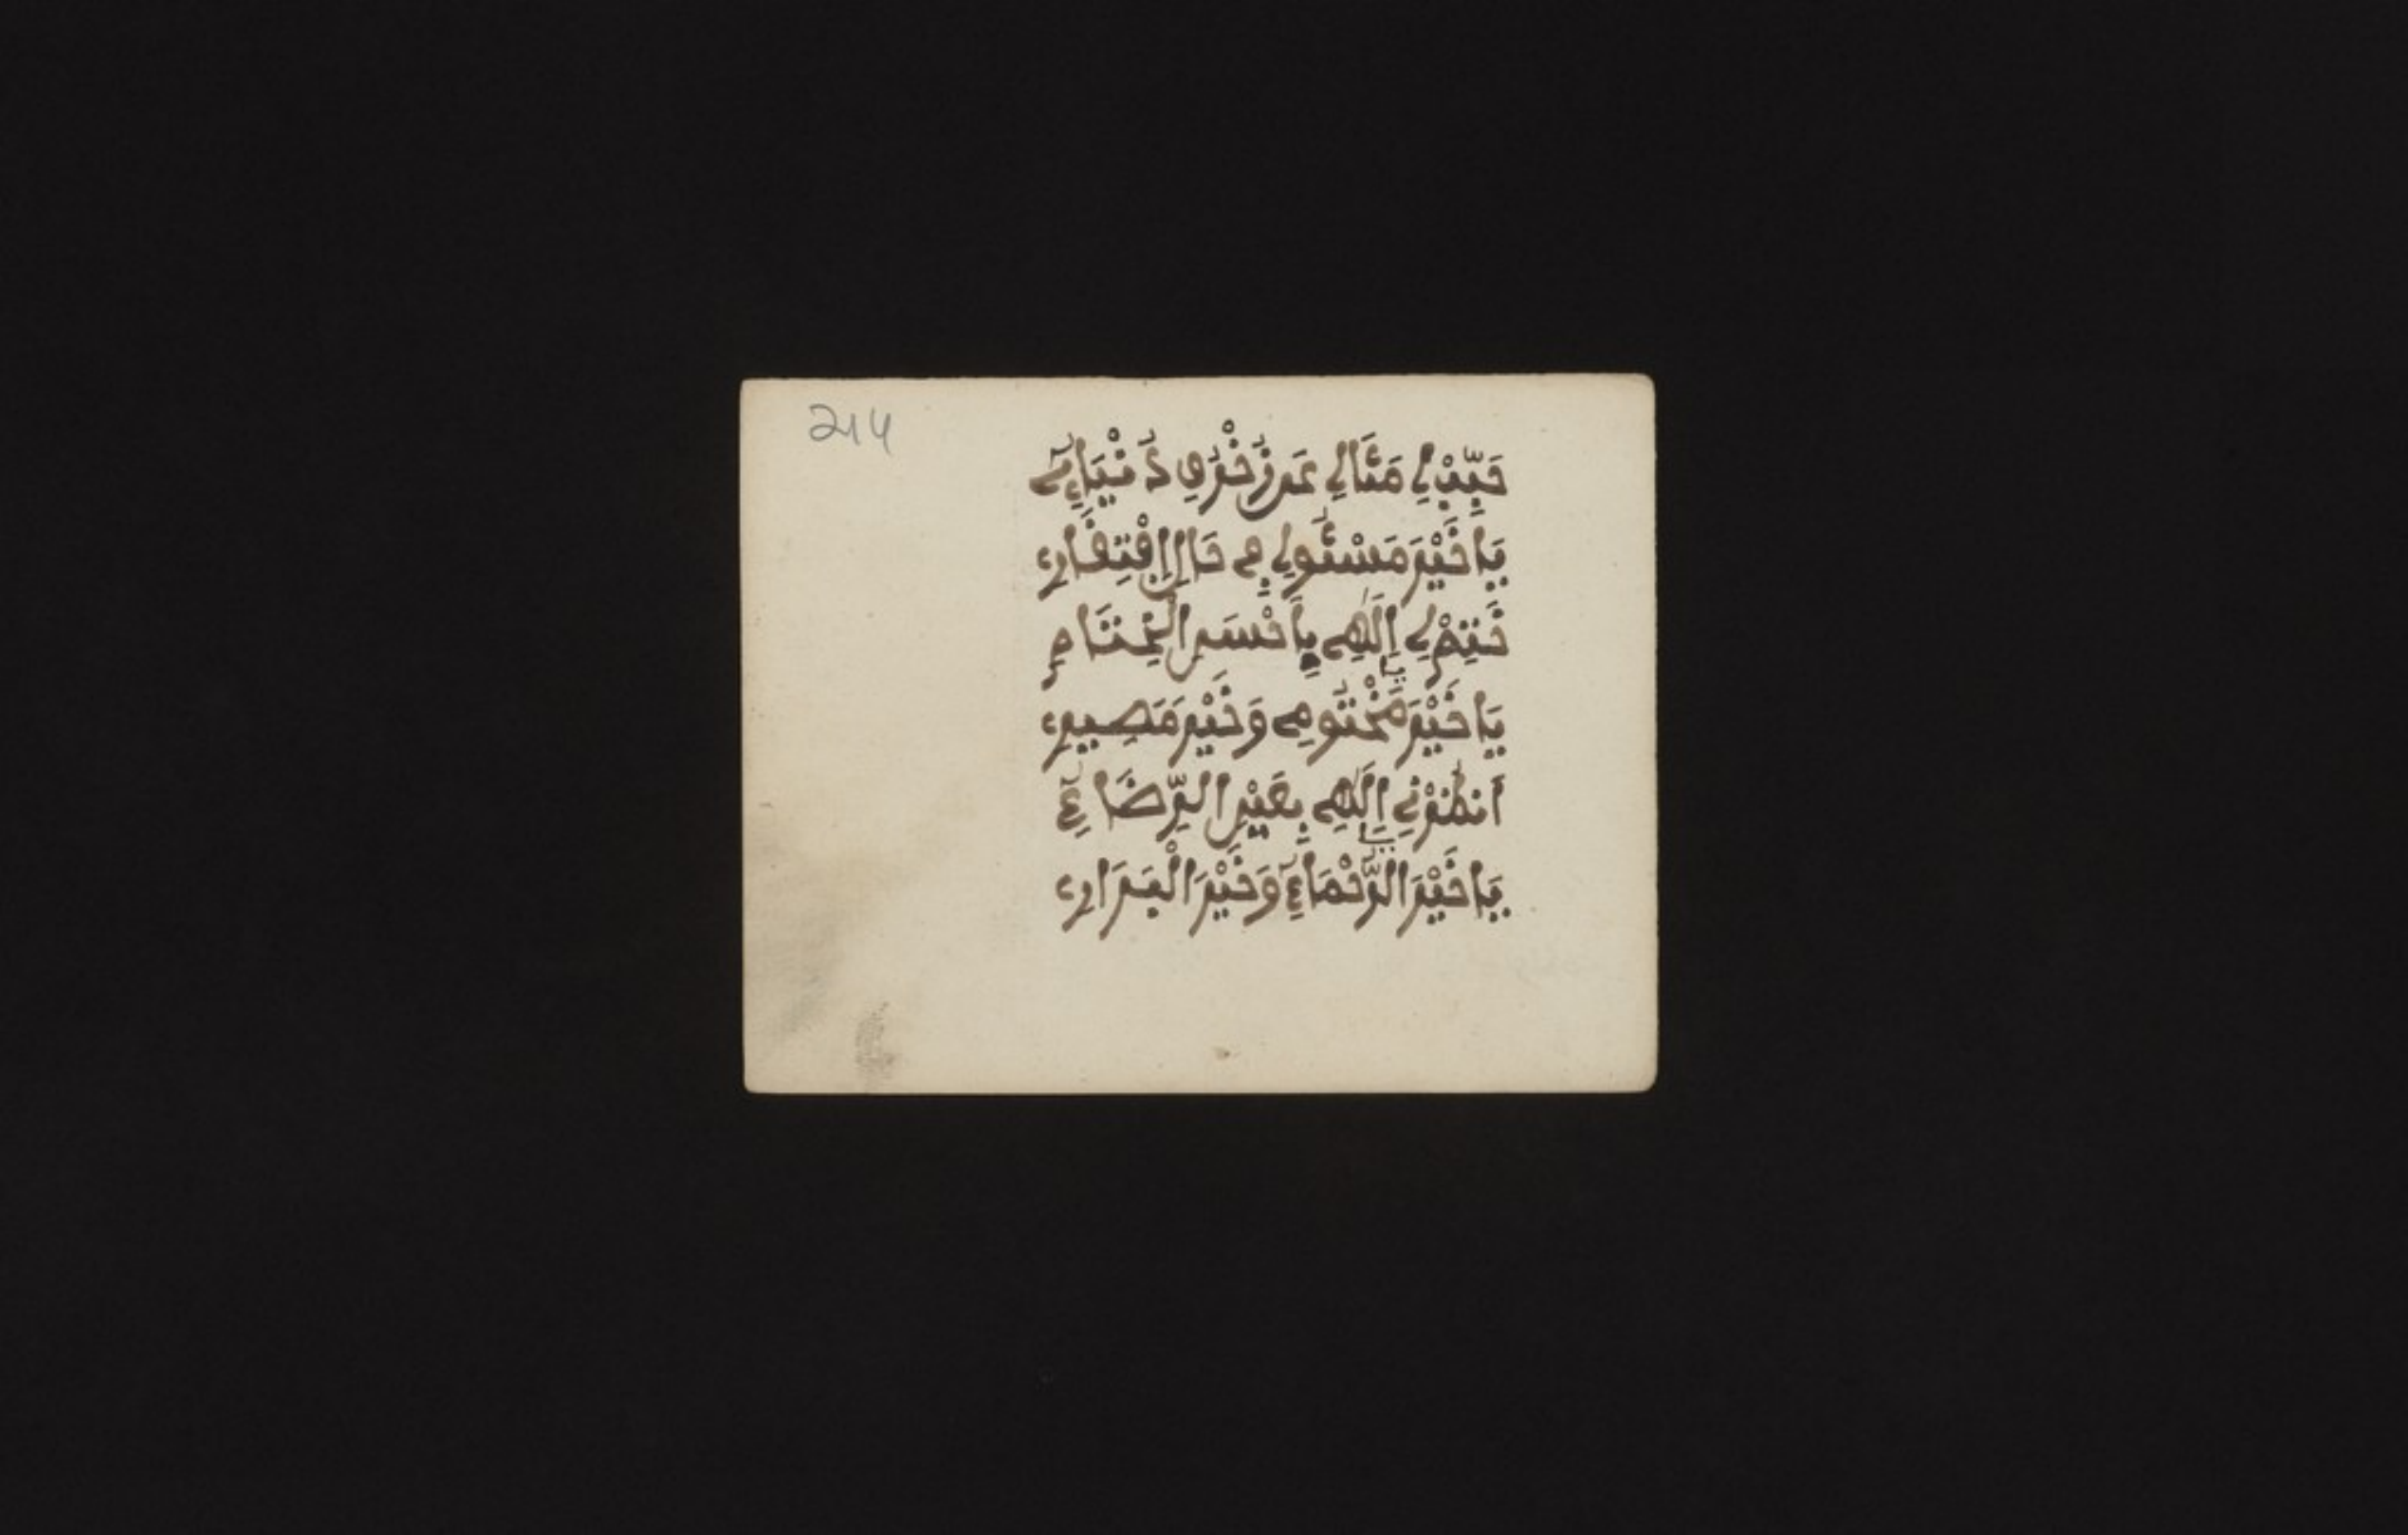 214
حَبِّبْ لِي مَئَالِي عَن زُخْرُفِ دُنْيَاءِي
يَا خَيْرَ مَسْئُولٍ فِي حَالِ إِفْتِقَارِ
خَتِمْ لِي إِلَٰهِي بِأَحْسَنِ الْخِتَامِ
يَا خَيْرَ مَخْتُومِي وَخَيْرَ مَصِيرِ
أَنظُرْنِي إِلَٰهِي بِعَيْنِ الرِّضَاءِ
يَا خَيْرَ الرُّحَمَاءِ وَخَيْرَ الْبَرَارِ